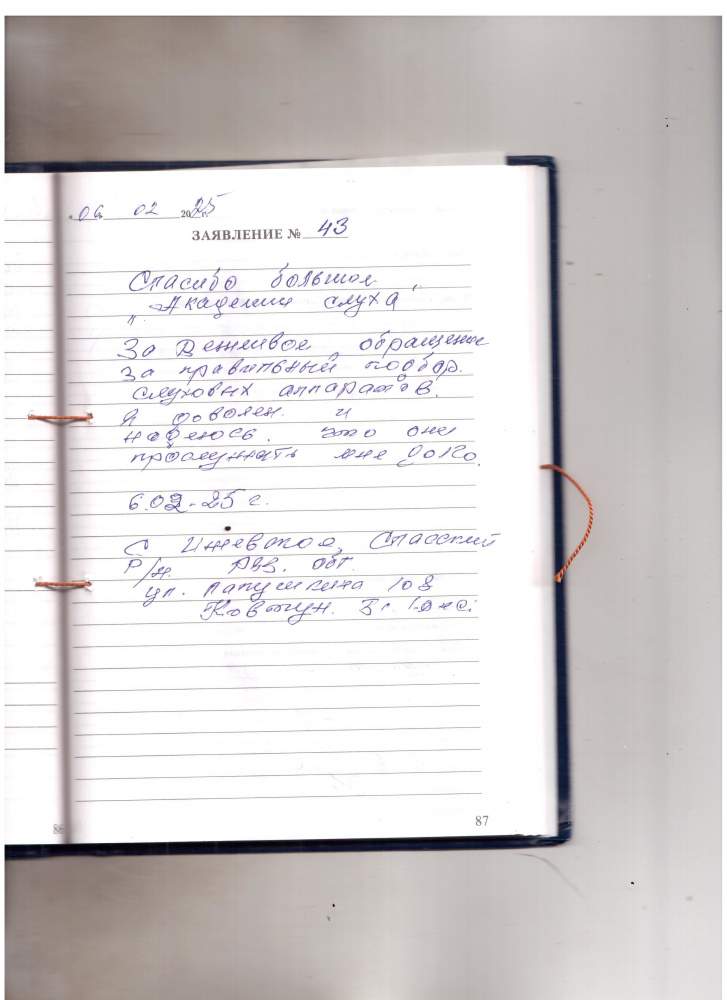 06 02 2025 г.
ЗАЯВЛЕНИЕ № 43
Спасибо большое
"Академии слуха"
За вежливое обращение
за правильный подбор.
слуховых аппаратов.
Я доволен. и
надеюсь. что они
прослужать мне долго.
6.02-25 г.
С Ижевское, Спасский
Р/н. Ряз. обл.
ул. 108
Ковтун.
87